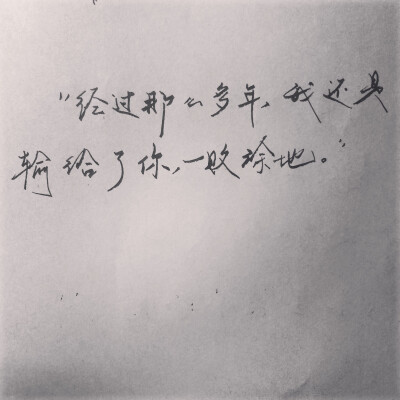 "经过那么多年，我还是
输给了你，一败涂地。"